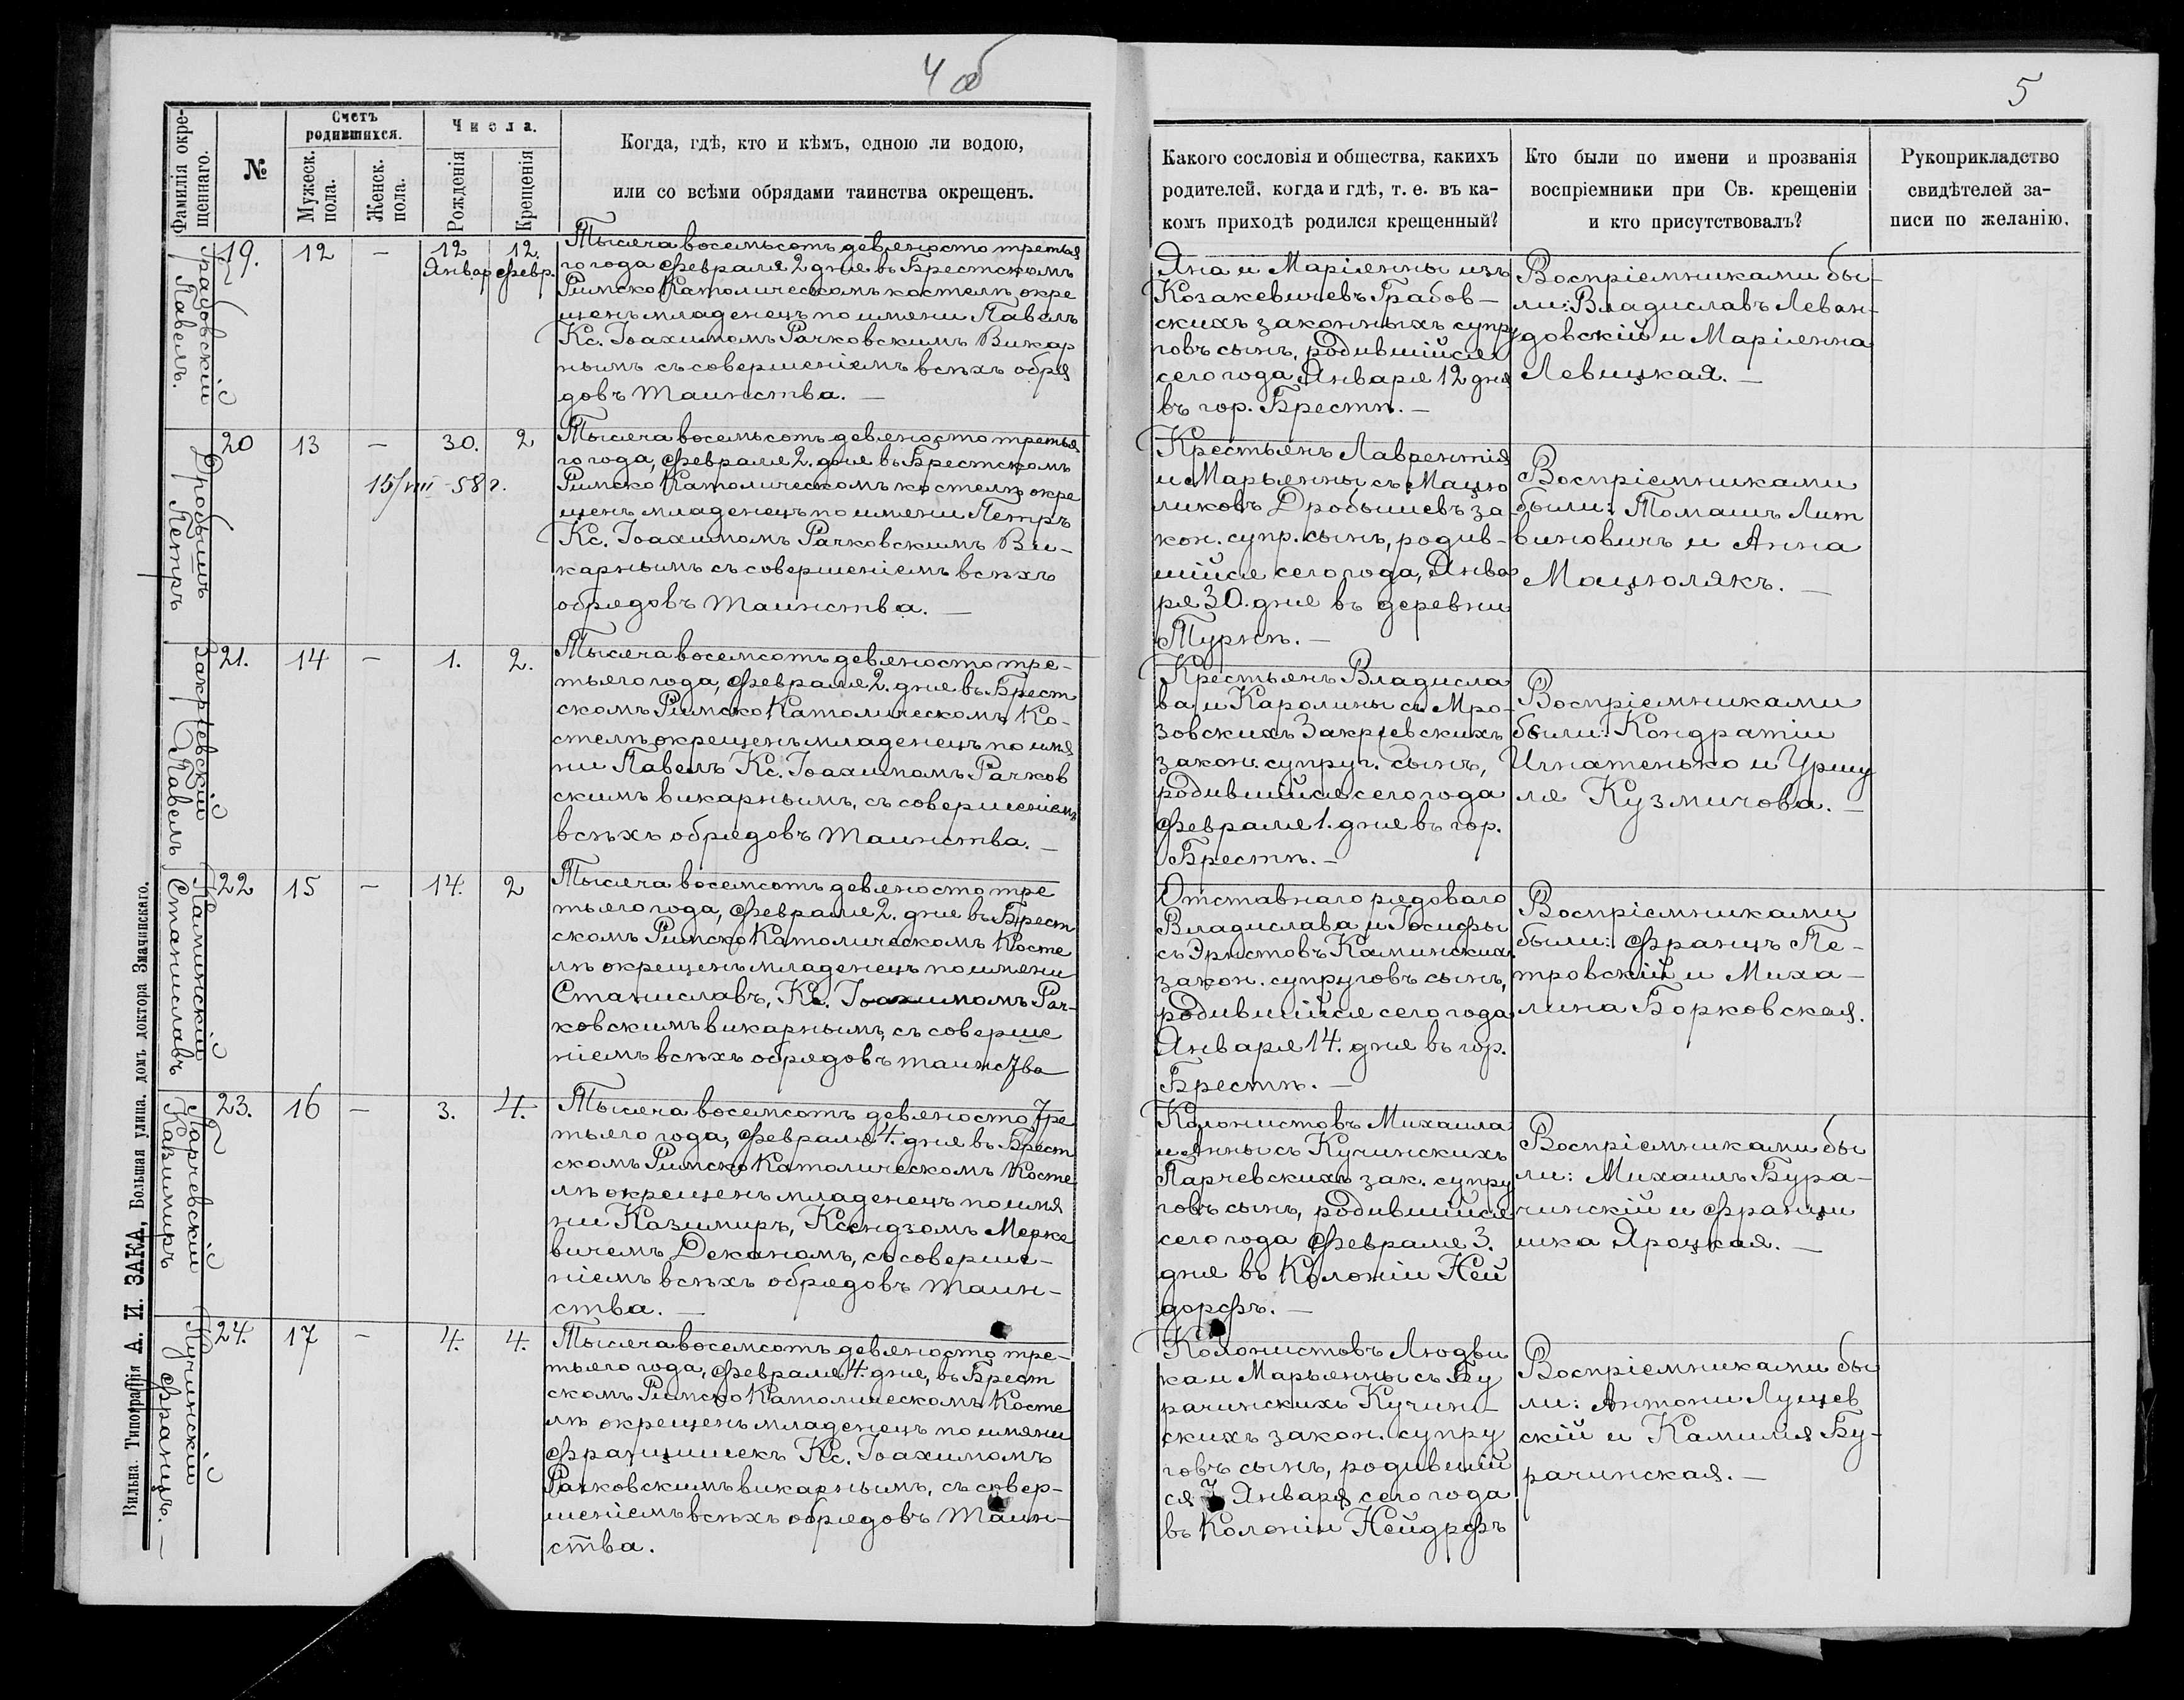 4 об
5
Фамилія окре-
щеннаго.
№
Счетъ
родившихся.
Мужеск.
пола.
Женск.
пола.
Числа.
Рожденія
Крещенія
Когда, гдѣ, кто и кѣмъ, одною ли водою,
или со всѣми обрядами таинства окрещенъ.
Какого сословія и общества, какихъ
родителей, когда и гдѣ, т. е. въ ка-
комъ приходѣ родился крещенный?
Кто были по имени и прозванія
воспріемники при Св. крещеніи
и кто присутствовалъ?
Рукоприкладство
свидѣтелей за-
писи по желанію.
Грабовскій
Павелъ.
19. 12 — 12 Январ 12. Февр.
Тысяча восемьсотъ девяносто третья
го года Февраля 2 дня въ Брестскомъ
Римско Католическомъ костелѣ окре
щенъ младенецъ по имени Павелъ
Кс. Іоахимомъ Рачковскимъ Викар
нымъ съ совершеніемъ всѣхъ обря
довъ Таинства. —
Яна и Маріянны изъ
Козакевичевъ Грабов-
скихъ законныхъ супру
говъ сынъ, родившійся
сего года Января 12 дня
въ гор. Брестѣ. —
Воспріемниками бы-
ли: Владиславъ Леван-
довскій и Маріянна
Левицкая. —
Дробышъ
Петръ
20 13 — 30. 2
15/VIII-58г.
Тысяча восемьсотъ девяносто третья
го года, Февраля 2. дня въ Брестскомъ
Римско Католическомъ костелѣ окре
щенъ младенецъ по имени Петръ
Кс. Іоахимомъ Рачковскимъ Ви-
карнымъ съ совершеніемъ всѣхъ
обрядовъ Таинства. —
Крестьянъ Лаврентія
и Марьянны съ Мацю
ликовъ Дробышевъ за-
кон. супр. сынъ, родив-
шійся сего года, Янва
ря 30. дня въ деревни
Турнѣ. —
Воспріемниками
были: Томашъ Лит
виновичъ и Анна
Мацюлякъ. —
Закржевскій
Павелъ
21. 14 — 1. 2.
Тысяча восемсотъ девяносто тре-
тьяго года, Февраля 2. дня въ Брест
скомъ Римско Католическомъ Ко-
стелѣ окрещенъ младенецъ по имя
ни Павелъ Кс. Іоахимомъ Рачков
скимъ викарнымъ, съ совершеніемъ
всѣхъ обрядовъ Таинства. —
Крестьянъ Владисла
ва и Каролины съ Мро-
зовскихъ Закржевскихъ
закон. супруг. сынъ,
родившійся сего года
Февраля 1. дня въ гор.
Брестѣ. —
Воспріемниками
были: Кондратій
Игнатенько и Уршу
ля Кузмичова. —
Каминскій
Станиславъ
22 15 — 14. 2
Тысяча восемсотъ девяносто тре
тьяго года, Февраля 2. дня въ Брест
скомъ Римско Католическомъ Косте
лѣ окрещенъ младенецъ по имяни
Станиславъ, Кс. Іоахимомъ Рач-
ковскимъ викарнымъ, съ соверше
ніемъ всѣхъ обрядовъ таинства
Отставнаго рядоваго
Владислава и Іосифы
съ Эристовъ Каминских
закон. супруговъ сынъ,
родившійся сего года
Января 14. дня въ гор.
Брестѣ. —
Воспріемниками
были: Францъ Пе-
тровскій и Миха-
лина Борковская.
Парчевскій
Казимиръ
23. 16 — 3. 4.
Тысяча восемсотъ девяносто тре
тьяго года, Февраля 4. дня въ Брест
скомъ Римско Католическомъ Косте
лѣ окрещенъ младенецъ по имя
ни Казимиръ, Ксендзомъ Мерке
вичемъ Деканомъ, съ соверше-
ніемъ всѣхъ обрядовъ таин-
ства. —
Колонистовъ Михаила
и Анны съ Кучинскихъ
Парчевскихъ зак. супру
говъ сынъ, родившійся
сего года Февраля 3.
дня въ Колоніи Ней
дорфъ. —
Воспріемниками бы
ли: Михаилъ Бура-
чинскій и Францы
шка Яроцкая. —
Кучинскій
Францъ. —
24. 17 — 4. 4.
Тысяча восемсотъ девяносто тре-
тьяго года, Февраля 4. дня, въ Брест
скомъ Римско Католическомъ Косте
лѣ окрещенъ младенецъ по имяни
Францишекъ Кс. Іоахимомъ
Рачковскимъ викарнымъ, съ совер-
шеніемъ всѣхъ обрядовъ Таин-
ства.
Колонистовъ Людви
ка и Марьянны съ Бу
рачинскихъ Кучин-
скихъ закон. супру
говъ сынъ, родившій
ся Января сего года
въ Колоніи Нейдрфъ
Воспріемниками бы
ли: Антони Лущев
скій и Камилія Бу-
рачинская. —
Вильна. Типографія А. И. ЗАКА, Большая улица, домъ доктора Змачинскаго.